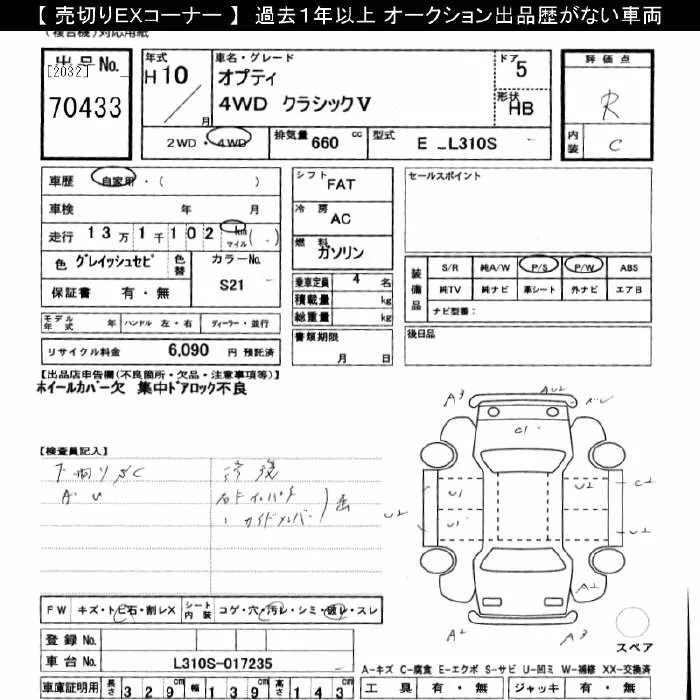 【 売切りEXコーナー 】 過去1年以上 オークション出品歴がない車両
(複合機)対応用紙
出品No.
[2032]
70433
年式
H 10
月
車名・グレード
オプティ
4WD クラシックV
ドア
5
形状
HB
2WD・4WD
排気量 660 cc
型式 E -L310S
評価点
R
内装
C
車歴 自家用・( )
車検 年 月
走行 13万1千102 km マイル ( . )
色 グレイッシュセピ
色替
カラーNo.
S21
保証書 有・無
モデル年式 年 ハンドル 左・右 ディーラー・並行
リサイクル料金 6,090 円 預託済
シフト FAT
冷房 AC
燃料 ガソリン
乗車定員 4 名
積載量 kg
総重量 kg
書類期限
月 日
セールスポイント
装備品
S/R 純A/W P/S P/W ABS
純TV 純ナビ 革シート 外ナビ エアB
ナビ型番:
後日品
【出品店申告欄(不良箇所・欠品・注意事項等)】
ホイールカバー欠 集中ドアロック不良
【検査員記入】
下回り SC
A U
修復
A3
AU2
C1
U1
U2
C2
U2
U1
U2
A2
A2
A3
スペア
FW キズ・トビ石・割レX
シート内装 コゲ・穴・汚レ・シミ・破レ・スレ
登録 No.
車台 No. L310S-017235
車庫証明用 長さ 329cm 幅 139cm 高さ 143cm
A-キズ C-腐食 E-エクボ S-サビ U-凹ミ W-補修 XX-交換済
工具 有・無 ジャッキ 有・無